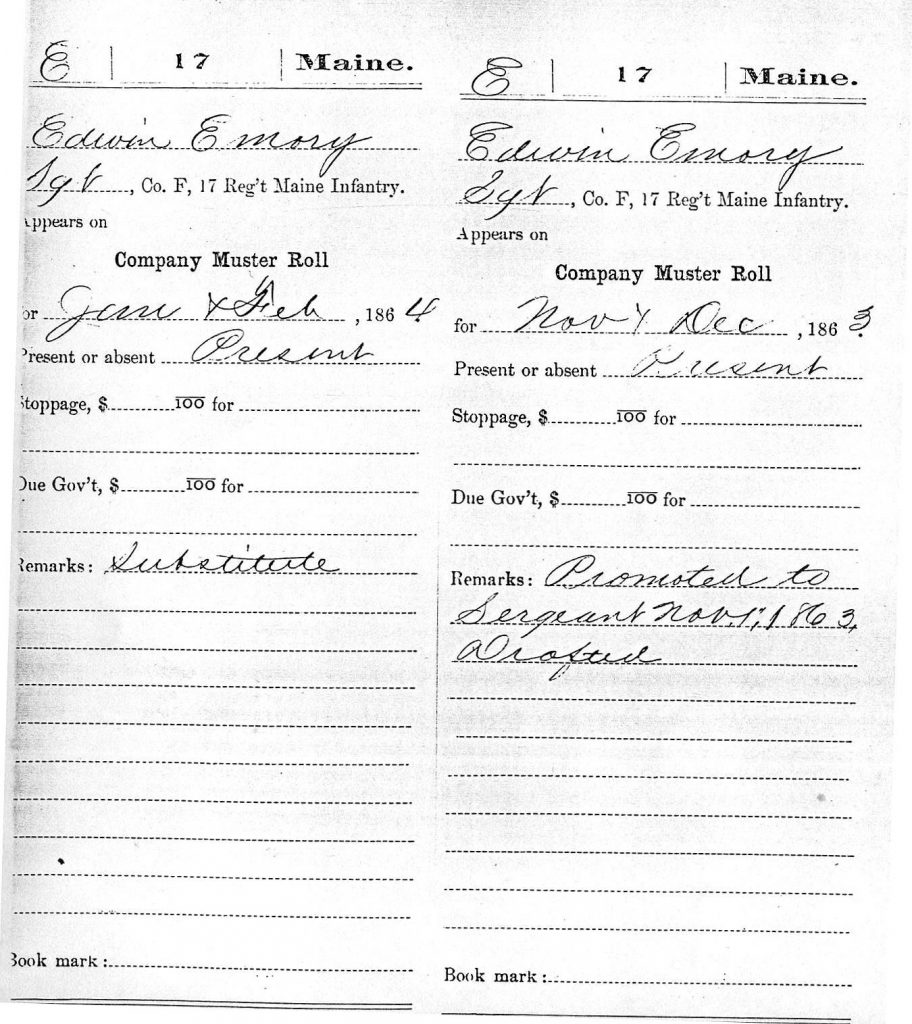 E | 17 | Maine.
Edwin Emory
Sgt, Co. F, 17 Reg't Maine Infantry.
Appears on
Company Muster Roll
or Jan & Feb, 1864
Present or absent Present
Stoppage, $ 100 for
Due Gov't, $ 100 for
Remarks: Substitute
Book mark:
E | 17 | Maine.
Edwin Emory
Sgt, Co. F, 17 Reg't Maine Infantry.
Appears on
Company Muster Roll
for Nov & Dec, 1863
Present or absent Present
Stoppage, $ 100 for
Due Gov't, $ 100 for
Remarks: Promoted to
Sergeant Nov. 1, 1863,
Drafted
Book mark: